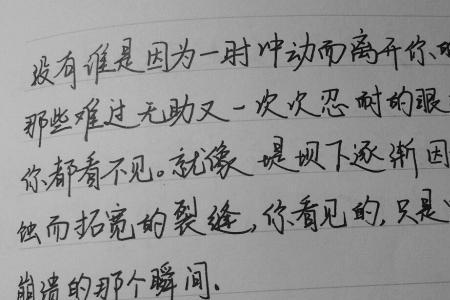 没有谁是因为一时冲动而离开你的
那些难过无助又一次次忍耐的眼
你都看不见。就像 堤坝下逐渐因
蚀而拓宽的裂缝,你看见的,只是
崩溃的那个瞬间.